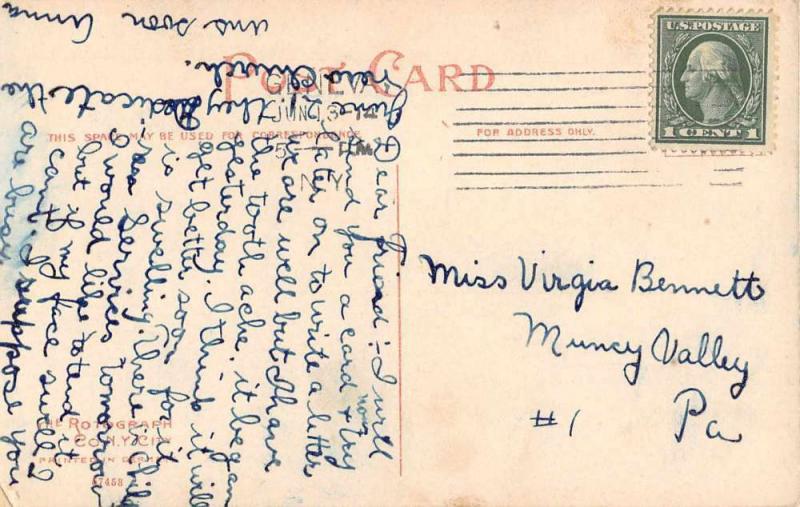 POST CARD
THIS SPACE MAY BE USED FOR CORRESPONDENCE
FOR ADDRESS ONLY.
U.S. POSTAGE
1 CENT 1
GENEVA,
JUN 13
5 - PM
N.Y.
Dear Friend:- I will
send you a card now & try
later on to write a letter
We are well but I have
the tooth ache. it began
yesterday. I think it will
get better soon for it
is swelling. There is
Services tomorrow
I would like to tend it
but if my face swells I
cant. I suppose you
are busy.
June 21 they Dedicate the
church.
ans soon Anna
Miss Virgia Bennett
Muncy Valley
#1 Pa
THE ROTOGRAPH
CO. N.Y. CITY
PRINTED IN GERMANY